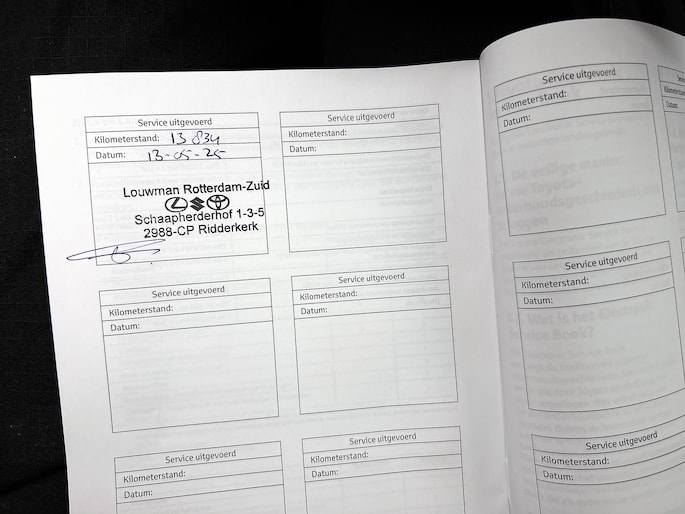 Service uitgevoerd
Kilometerstand: 13 834
Datum: 13-05-25
Louwman Rotterdam-Zuid
Schaapherderhof 1-3-5
2988-CP Ridderkerk
Service uitgevoerd
Kilometerstand:
Datum:
Service uitgevoerd
Kilometerstand:
Datum:
Service uitgevoerd
Kilometerstand:
Datum:
Service uitgevoerd
Kilometerstand:
Datum:
Service uitgevoerd
Kilometerstand:
Datum:
Service uitgevoerd
Kilometerstand:
Datum:
De veilige manier
Service uitgevoerd
Kilometerstand:
Datum:
Wat is het
Book?
Service uitgevoerd
Kilometerstand:
Datum: